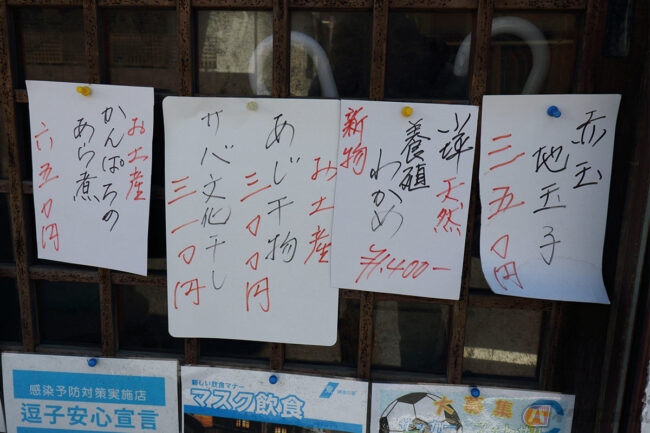 赤玉
地玉子
三五〇円
小坪 天然
養殖
わかめ
新物
¥1,400-
お土産
あじ干物
三〇〇円
サバ文化干し
三一〇円
お土産
かんぱちの
あら煮
六五〇円
感染予防対策実施店
逗子安心宣言
新しい飲食マナー
マスク飲食
大募集